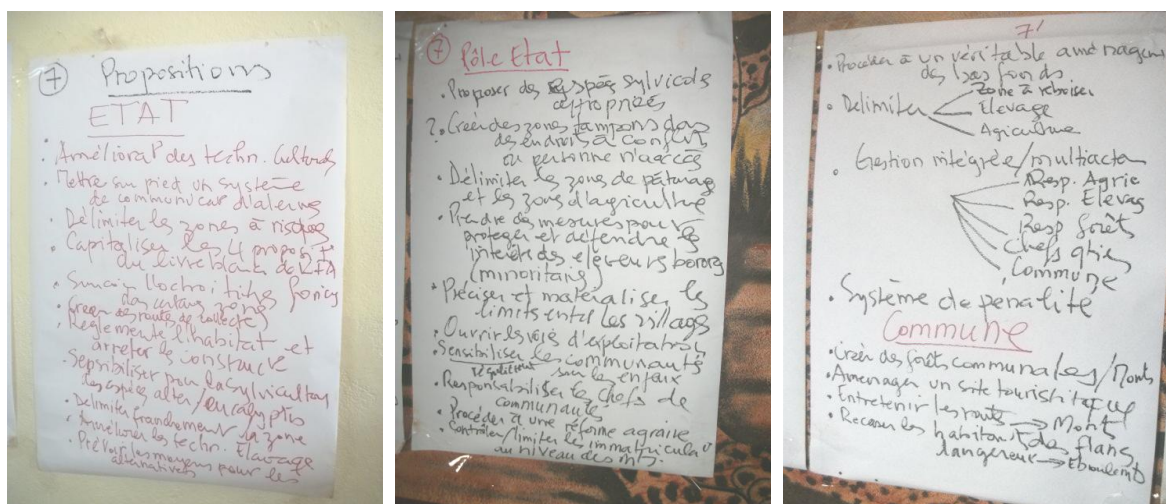 7 Propositions
ETAT
. Améliorat° des techn. Culturales
. Mettre sur pied un système
de communicat° d'alerte
. Délimiter les zones à risques
. Capitaliser les 4 propos
du livre blanc de
. fonciers
dans certaines zones
Créer des routes de collecte
. Réglementer l'habitat et
arrêter les construct°
. Sensibiliser pour la sylviculture
des espèces alter/eucalyptus
. Délimiter franchement la zone
. Améliorer les techn. Elevage
. Prévoir les moyens pour les
alternatives
7 Pôle Etat
. Proposer des espèces sylvicoles
appropriées
? . Créer des zones tampons dans
des endroits à conflits
où personne n'a accès
. Délimiter les zones de pâturage
et les zones d'agriculture
. Prendre des mesures pour
protéger et défendre les
intérêts des éleveurs bororo
(minoritaires)
. Préciser et matérialiser les
limites entre les villages
. Ouvrir les voies d'exploitation
. Sensibiliser les communautés
régulièrement sur les enjeux
. Responsabiliser les chefs de
communautés
. Procéder à une réforme agraire
. Contrôler/limiter les immatriculat°
au niveau des mts.
7'
. Procéder à un véritable aménagement
des bas fonds
. Délimiter
zone à reboiser
Elevage
Agriculture
. Gestion intégrée/multiacteur
Resp. Agric
Resp. Elevag
Resp forêt
Chefs qtiers
Commune
. Système de pénalité
Commune
. Créer des forêts communales/Monts
. Aménager un site touristique
. Entretenir les routes → Monts
. Recaser les habitants des flans
dangereux → Eboulemts